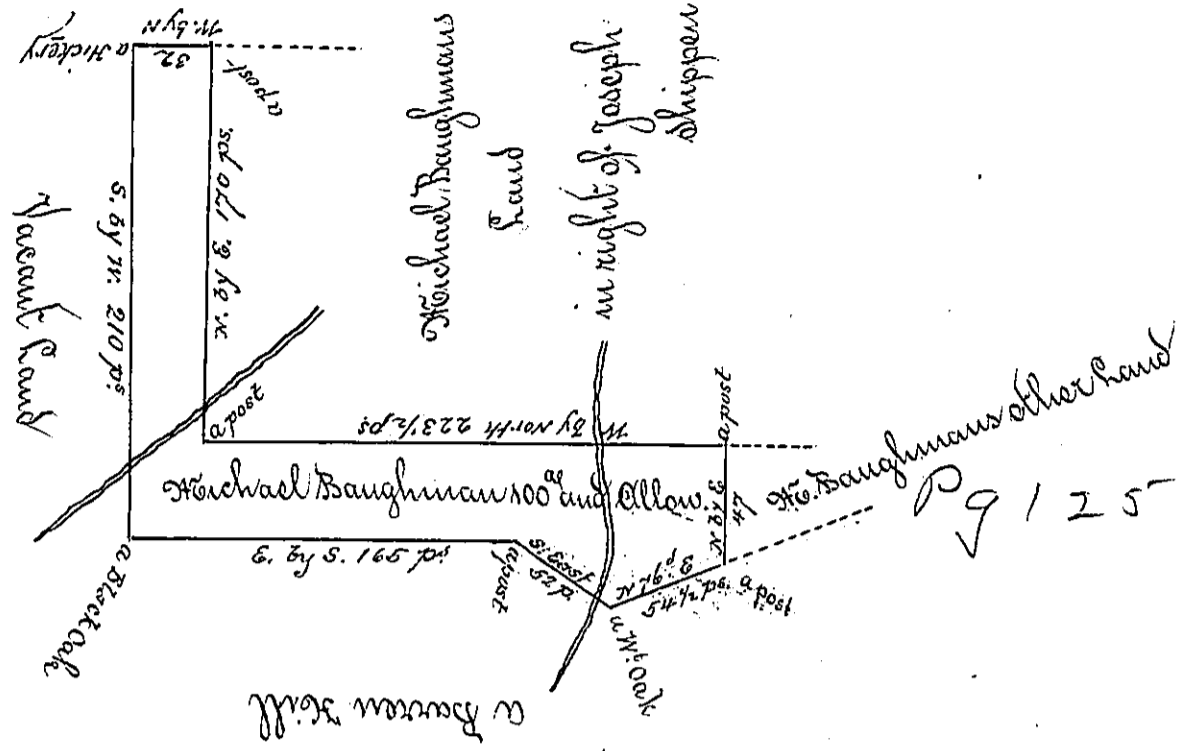 a Hickery
32
W. By N
a post
N. By E 170 ps.
S. By W. 210 ps.
Vacant Land
Michael Baughmans
Land
in right of Joseph
Shippen
a post
W By North 223 1/2 ps
a post
Michael Baughman 100 as and Allow.
N By E
47
M. Baughmans other Land
Pg 125
a Black Oak
E. By S. 165 ps.
a post
South East
62 p
a W. Oak
54 1/2 ps.
a post
a Barren Hill